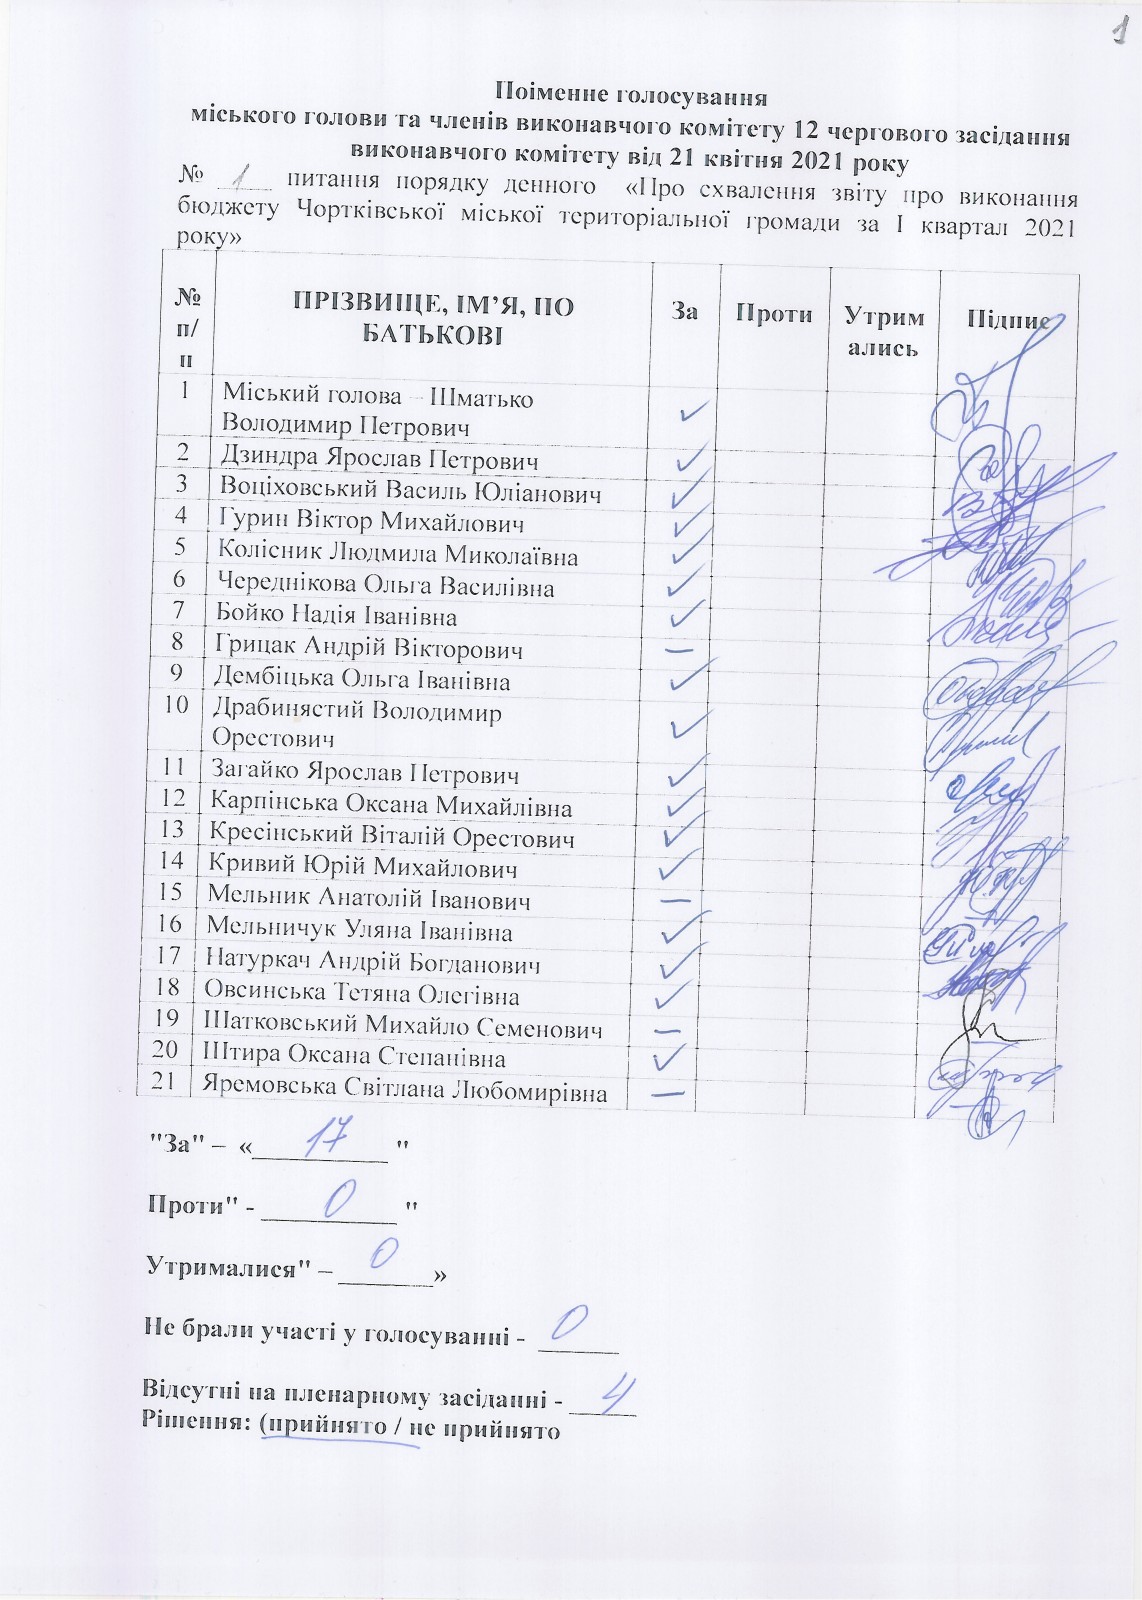 1
Поіменне голосування
міського голови та членів виконавчого комітету 12 чергового засідання
виконавчого комітету від 21 квітня 2021 року
№ 1 питання порядку денного «Про схвалення звіту про виконання
бюджету Чортківської міської територіальної громади за І квартал 2021
року»
№ п/п ПРІЗВИЩЕ, ІМ’Я, ПО БАТЬКОВІ За Проти Утримались Підпис
1 Міський голова – Шматько
Володимир Петрович ✓
2 Дзиндра Ярослав Петрович ✓
3 Воціховський Василь Юліанович ✓
4 Гурин Віктор Михайлович ✓
5 Колісник Людмила Миколаївна ✓
6 Череднікова Ольга Василівна ✓
7 Бойко Надія Іванівна ✓
8 Грицак Андрій Вікторович –
9 Дембіцька Ольга Іванівна ✓
10 Драбинястий Володимир
Орестович ✓
11 Загайко Ярослав Петрович ✓
12 Карпінська Оксана Михайлівна ✓
13 Кресінський Віталій Орестович ✓
14 Кривий Юрій Михайлович ✓
15 Мельник Анатолій Іванович –
16 Мельничук Уляна Іванівна ✓
17 Натуркач Андрій Богданович ✓
18 Овсинська Тетяна Олегівна ✓
19 Шатковський Михайло Семенович –
20 Штира Оксана Степанівна ✓
21 Яремовська Світлана Любомирівна –
"За" – «17 "
Проти" - 0 "
Утрималися" – 0»
Не брали участі у голосуванні - 0
Відсутні на пленарному засіданні - 4
Рішення: (прийнято / не прийнято